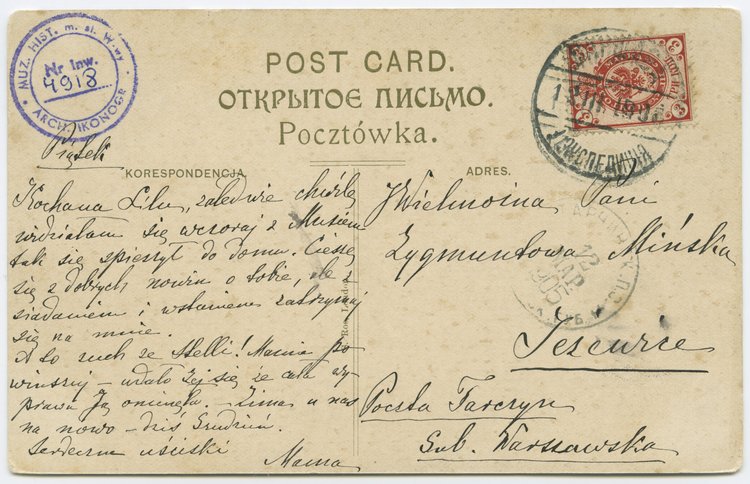 MUZ. HIST. m. st. W-wy
Nr Inw.
4918
ARCH. IKONOGR.
POST CARD.
ОТКРЫТОЕ ПИСЬМО.
Pocztówka.
KORESPONDENCJA.
ADRES.
Piątek
Kochana Lilu, zaledwie chwilę
widziałam się wczoraj z
tak się spieszył do domu. Cieszę
się z dobrych nowin o tobie, ale z
siadaniem i wstaniem zatrzymaj
się na mnie.
A to zuch ze Stelli! Mamie po
winszuj – udało Jej się że cała wy
prawa Ją ominęła. – Zima u nas
na nowo – dziś Grudzień.
Serdeczne uściski
Mama
JWielmożna Pani
Zygmuntowa Mińska
Jeziewice
Poczta Tarczyn
Gub. Warszawska
3
ЭКСПЕДИЦІЯ
12
МАР
1905